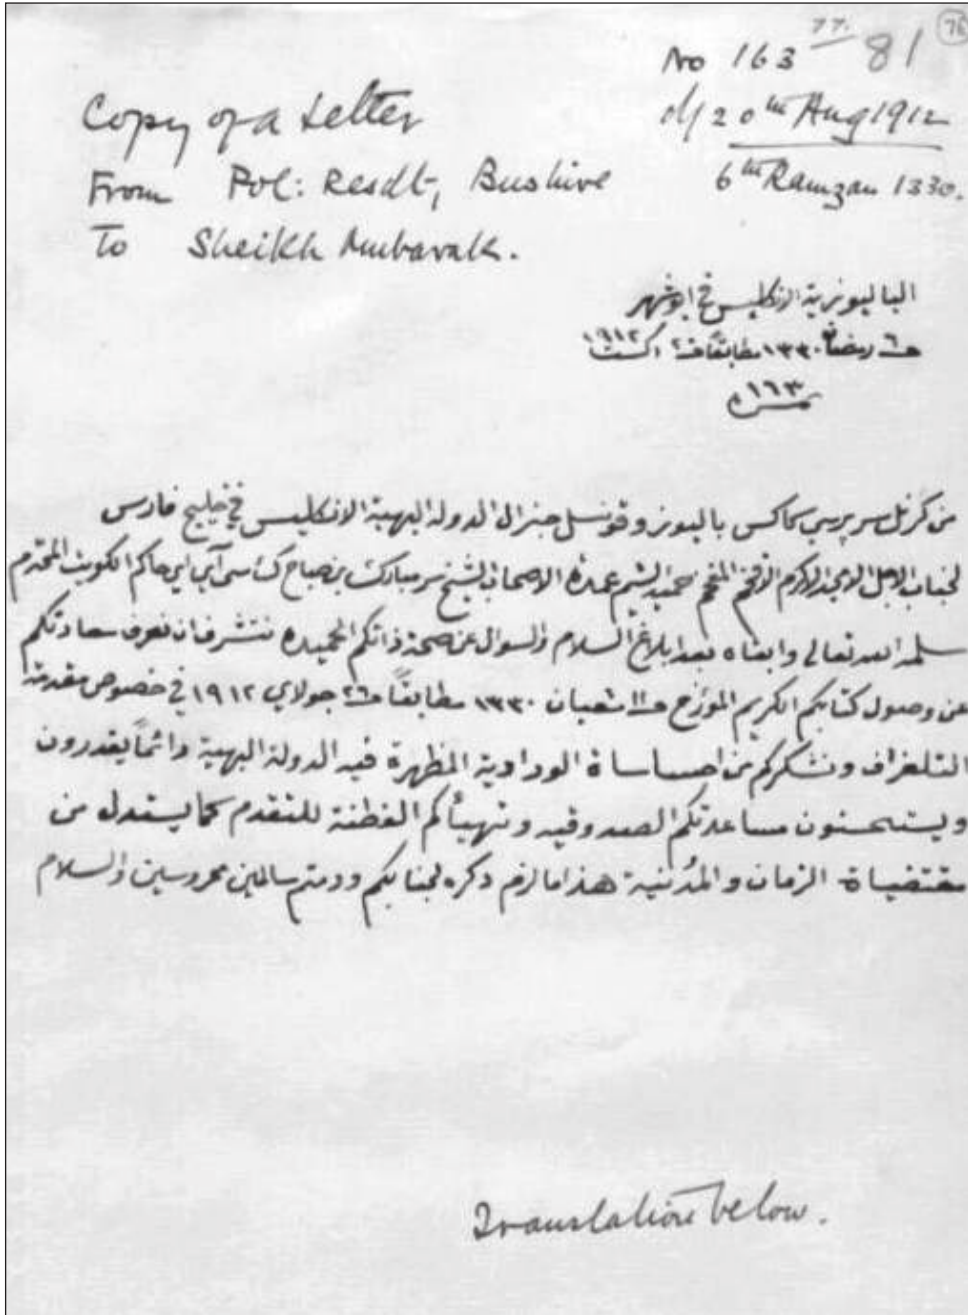 77. 81 76
No 163
Copy of a Letter
d/ 20th Aug 1912
From Pol: Resdt, Bushire
6th Ramzan 1330.
To Sheikh Mubarak.
الباليوزية الانكليس في ابوشهر
٦ رمضان ١٣٣٠ مطابقا ٢٠ اكست ١٩١٢
١٦٣
من كرنل سر پرسي كاكس باليوز و قونسل جنرال الدولة البهية الانكليس في خليج فارس
لجناب الاجل الامجد الاكرم الافخم المفخم حميد الشيم عمدة الاصحاب الشيخ سر مبارك بن صباح كي سي آي اي حاكم الكويت المحترم
سلمه الله تعالى وابقاه بعد ابلاغ السلام والسوال عن صحة ذاتكم الحميده نتشرف ان نعرف سعادتكم
عن وصول كتابكم الكريم المورخ ١١ شعبان ١٣٣٠ مطابقاً ٢٦ جولاي ١٩١٢ في خصوص مقدمة
التلغراف ونشكركم من احساساة الودادية المظهرة فيه الدولة البهية دائماً يقدرون
ويستحسنون مساعدتكم الصدوقيه وتهيأكم الفطنة للتقدم كما يستدل من
مقتضياة الزمان والمدُنية هذا ما لزم ذكره لجنابكم ودمتم سالمين محروسين والسلام
Translation below.